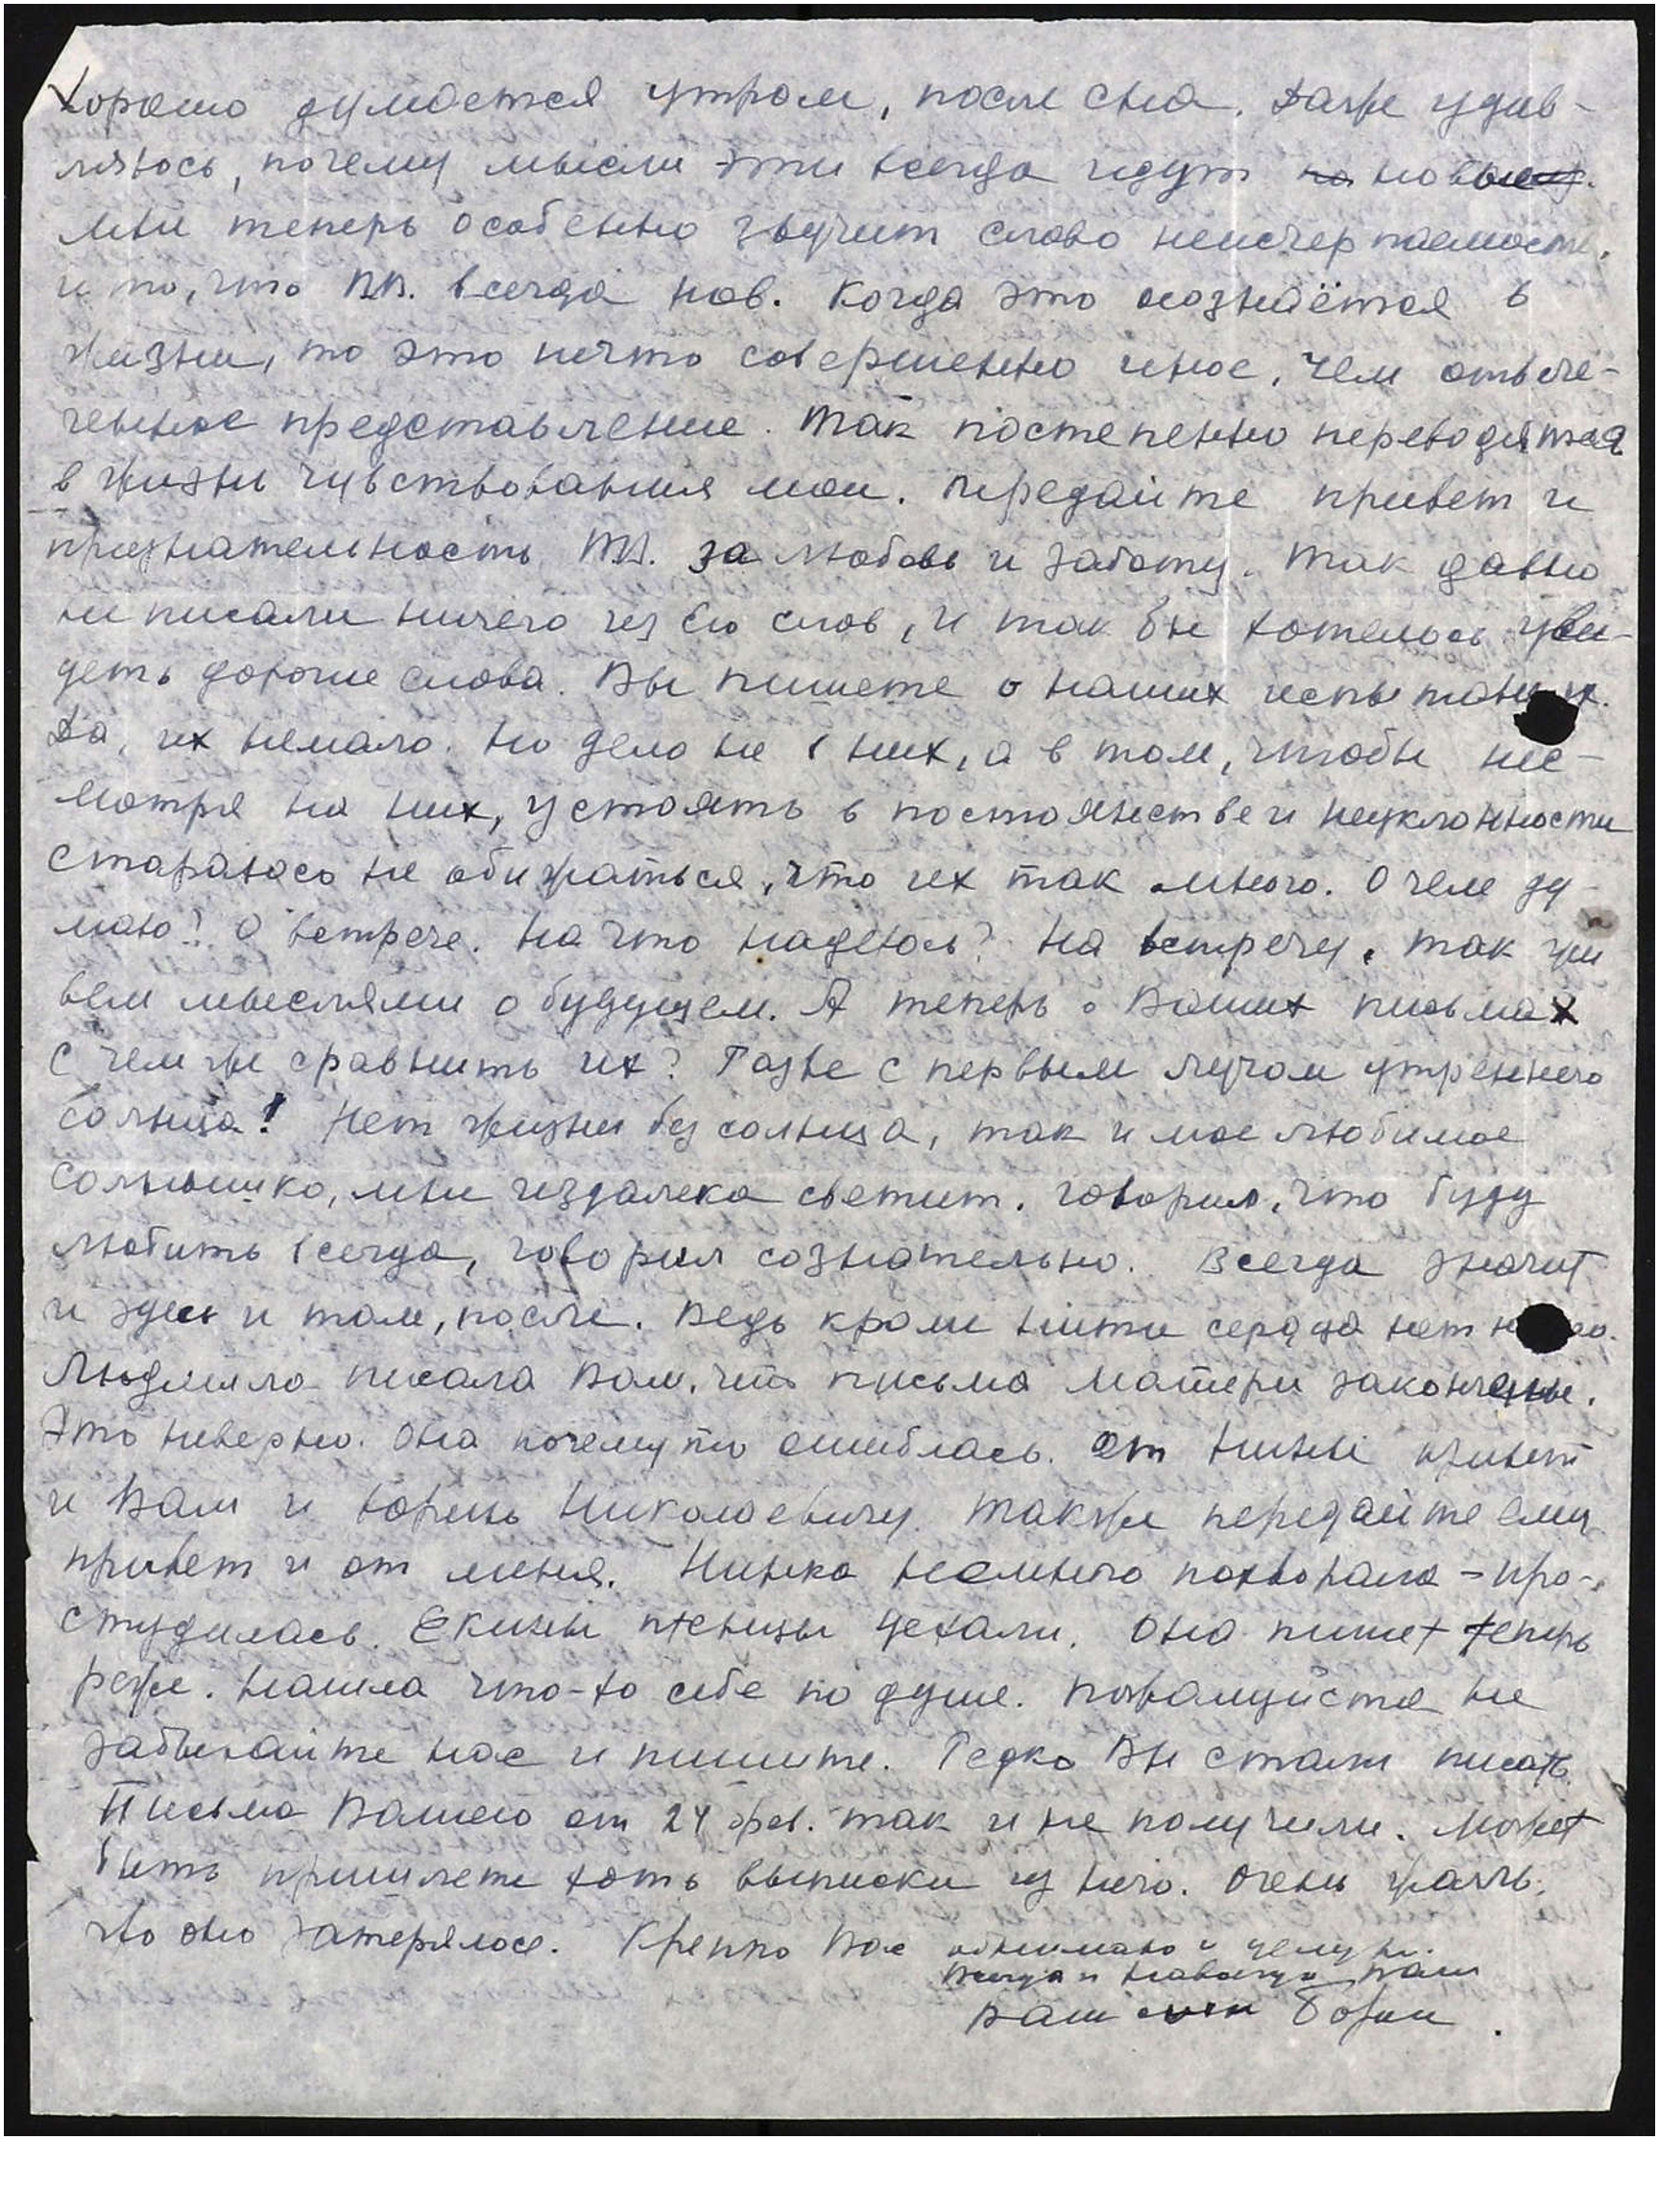 Хорошо думается утром, после сна. Даже удив-
ляюсь, почему мысли эти всегда идут новые.
Мне теперь особенно звучит слово неисчерпаемость,
и то, что вл. всегда нов. Когда это осознаётся в
жизни, то это нечто совершенно иное, чем отвле-
ченное представление. Так постепенно переводятся
в жизнь чувствования мои. Передайте привет и
признательность за любовь и заботу. Так давно
не писали ничего из Его слов, и так бы хотелось уви-
деть дорогие слова. Вы пишете о наших испытаниях.
Да, их немало. Но дело не в них, а в том, чтобы нес-
мотря на них, устоять в постоянстве и неуклонности
Стараюсь не обижаться, что их так много. О чем ду-
маю? О встрече. На что надеюсь? На встречу. Так жи
вем мыслями о будущем. А теперь о Ваших письмах
С чем же сравнить их? Разве с первым лучом утреннего
солнца! Нет жизни без солнца, так и мое любимое
солнышко, мне издалека светит. Говорил, что буду
любить всегда, говорил сознательно. Всегда значит
и здесь и там, после. Ведь кроме нити сердца нет
Людмила писала Вам, что письма Матери закончены.
Это неверно. Она почему то ошиблась. От Нины привет
и Вам и Юрию Николаевичу. Также передайте ему
привет и от меня. Нинка немного похворала – про-
студилась. Екины птенцы уехали. Она пишет теперь
реже. Нашла что-то себе по душе. Пожалуйста не
забывайте нас и пишите. Редко Вы стали писать.
Письма Вашего от 24 фев. так и не получили. Может
быть пришлете хоть выписки из него. Очень жаль,
что оно затерялось. Крепко Вас обнимаю и целую.
Всегда и навсегда Ваш
Ваш сын Борис.